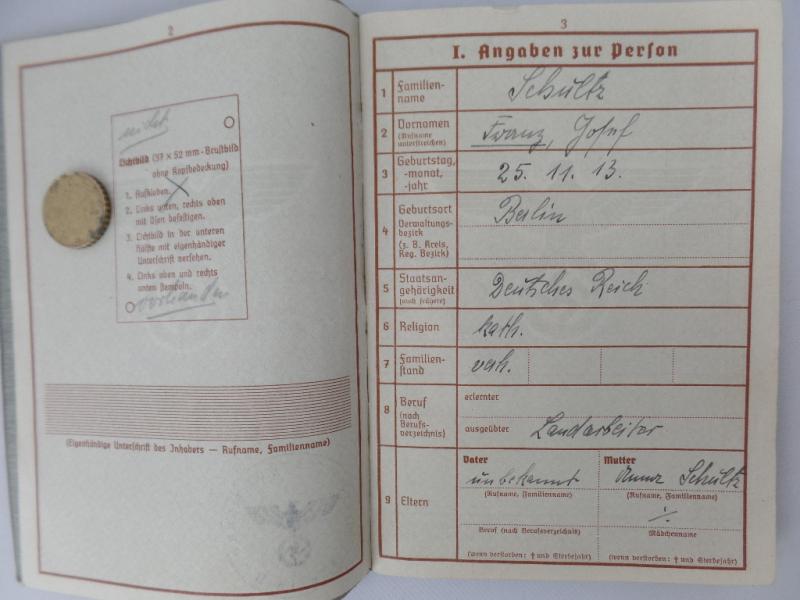 2
nicht
Lichtbild (37 × 52 mm - Brustbild
ohne Kopfbedeckung)
1. Aufkleben.
2. Links unten, rechts oben
mit Ösen befestigen.
3. Lichtbild in der unteren
Hälfte mit eigenhändiger
Unterschrift versehen.
4. Links oben und rechts
unten stempeln.
vorhanden
(Eigenhändige Unterschrift des Inhabers — Rufname, Familienname)
3
I. Angaben zur Person
1 Familien-
name
Schultz
2 Vornamen
(Rufname
unterstreichen)
Franz, Josef
3 Geburtstag,
-monat,
-jahr
25. 11. 13.
4 Geburtsort
Verwaltungs-
bezirk
(z. B. Kreis,
Reg. Bezirk)
Berlin
5 Staatsan-
gehörigkeit
(auch frühere)
Deutsches Reich
6 Religion
kath.
7 Familien-
stand
verh.
8 Beruf
(nach
Berufs-
verzeichnis)
erlernter
ausgeübter Landarbeiter
9 Eltern
Vater
unbekannt
(Rufname, Familienname)
Beruf (nach Berufsverzeichnis)
(wenn verstorben: † und Sterbejahr)
Mutter
Anna Schultz
(Rufname, Familienname)
Mädchenname
(wenn verstorben: † und Sterbejahr)